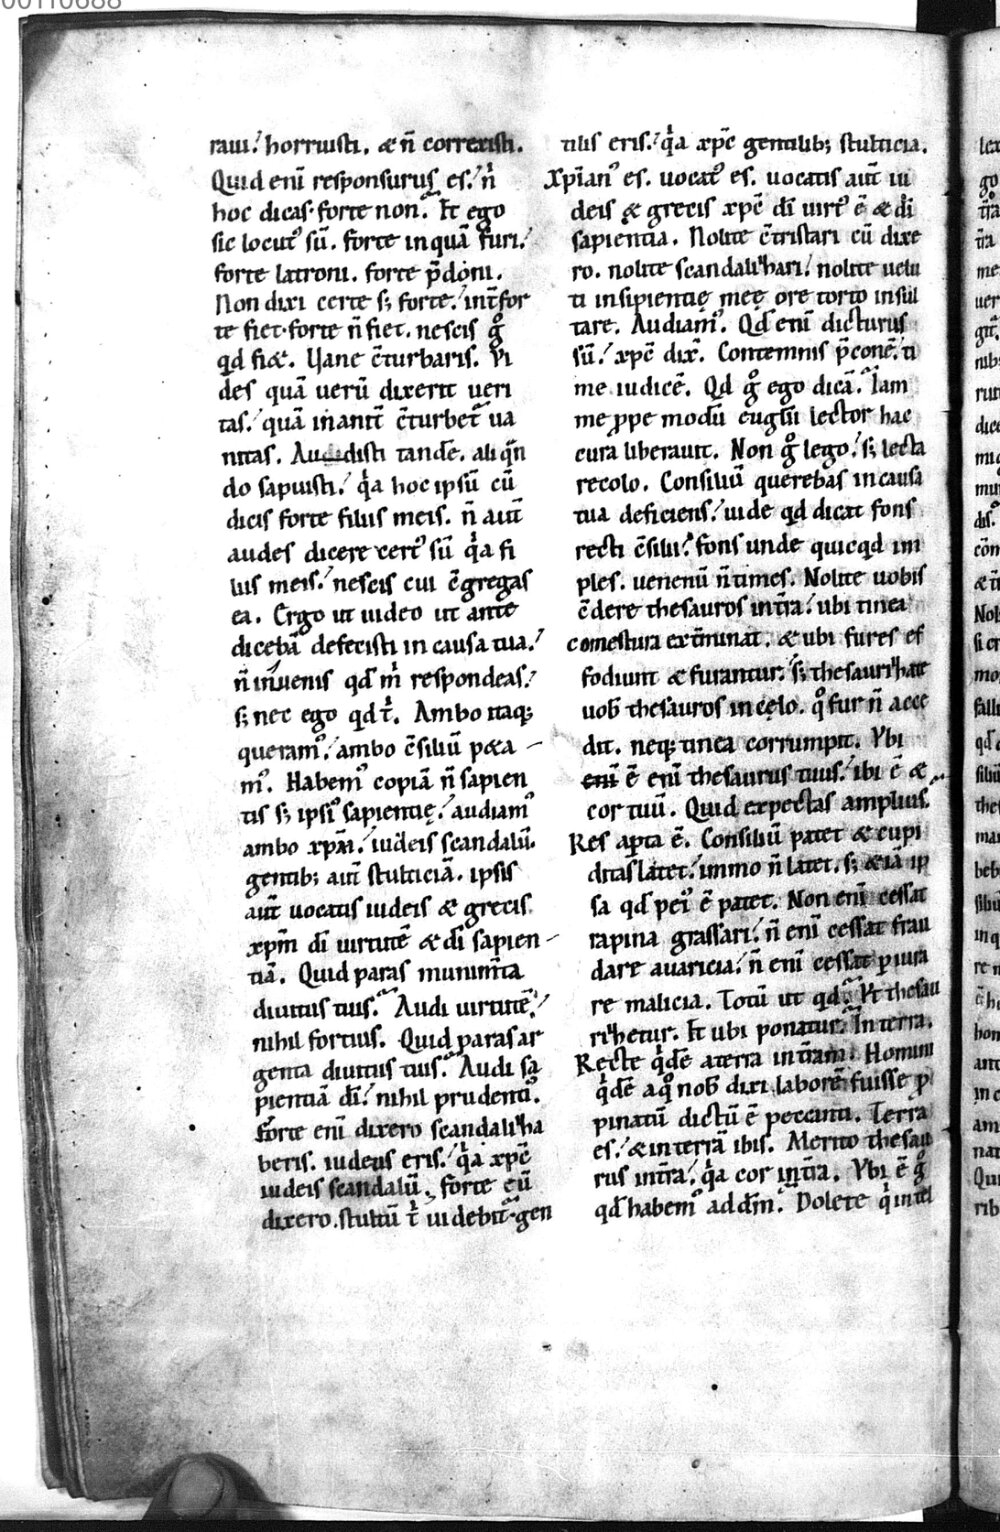 00110688
raui.' horruisti. & n̄ correxisti.
Quid enī responsurus es.' n̄
hoc dicas. forte non. Et ego
sic locutꝰ sū. forte inquā furi.'
forte latroni. forte p̄doni.
Non dixi certe s; forte.' int̄ for
te fiet. forte n̄ fiet. nescis gͦ
qd fi&. Uane c̄turbaris. Vi
des quā uerū dixerit ueri
tas.' quā inanit̄ c̄turbet̄ ua
nitas. Audisti tandē. aliqn̄
do sapuisti.' qͥa hoc ipsū cū
dicis forte filiis meis. n̄ aut̄
audes dicere certꝰ sū qͥa fi
liis meis.' nescis cui c̄gregas
ea. Ergo ut uideo ut ante
dicebā defecisti in causa tua.'
n̄ inuenis qd m̄ respondeas.'
s; nec ego qd tͥ. Ambo itaq;
queramꝰ.' ambo c̄siliū p&a
mꝰ. Habemꝰ copiā n̄ sapien
tis s; ipsiꝰ sapientię.' audiamꝰ
ambo xpm̄.' iudeis scandalū.
gentib; aut̄ stulticiā. ipsis
aut̄ uocatis iudeis & grecis
xpm̄ dī uirtutē & dī sapien
tiā. Quid paras munim̄ta
diuitiis tuis. Audi uirtutē.'
nihil fortius. Quid paras ar
genta diuitiis tuis. Audi sa
pientiā dī.' nihil prudentiꝰ.
Forte enī dixero scandaliha
beris. iudeus eris.' qͥa xpc̄
iudeis scandalū. forte cū
dixero. stultū tͥ uidebit̄. gen
tilis eris.' qͥa xpc̄ gentilib; stulticia.
Xpianꝰ es. uocatꝰ es. uocatis aut̄ iu
deis & grecis xpc̄ dī uirtꝰ ē & dī
sapientia. Nolite c̄tristari cū dixe
ro. nolite scandalihari.' nolite uelu
ti insipientię meę ore torto insul
tare. Audiamꝰ. Qd enī dicturus
sū.' xpc̄ dixͭ. Contemnis p̄conē.' ti
me iudicē. Qd gͦ ego dicā. Iam
me ꝓpe modū euglīi lector hac
cura liberauit. Non gͦ lego.' s; lecta
recolo. Consiliū querebas in causa
tua deficiens.' uide qd dicat fons
recti c̄silii.' fons unde quicqd im
ples. uenenū n̄ times. Nolite uobis
c̄dere thesauros in tr̄a.' ubi tinea
comestura ext̄minat. & ubi fures ef
fodiunt & furantur.' s; thesaurihate
uob̄ thesauros in cęlo. qͦ fur n̄ acce
dit. neq; tinea corrumpit. Vbi
enī ē enī thesaurus tuus.' ibi ē &
cor tuū. Quid expectas amplius.
Res apta ē. Consiliū patet & cupi
ditas latet.' immo n̄ latet. s; &iā ip
sa qd peiꝰ ē patet. Non enī cessat
rapina grassari.' n̄ enī cessat frau
dare auaricia.' n̄ enī cessat piura
re malicia. Totū ut qd. Vt thesau
rihetur. Et ubi ponatur. In terra.
Recte qͥdē a terra in tr̄am. Homini
qͥdē a qͦ nob̄ dixi laborē fuisse ꝓ
pinatū dictū ē peccanti. Terra
es.' & in terrā ibis. Merito thesau
rus in tr̄a.' qͥa cor in tr̄a. Vbi ē gͦ
qd habemꝰ ad dn̄m. Dolete qͥ intel